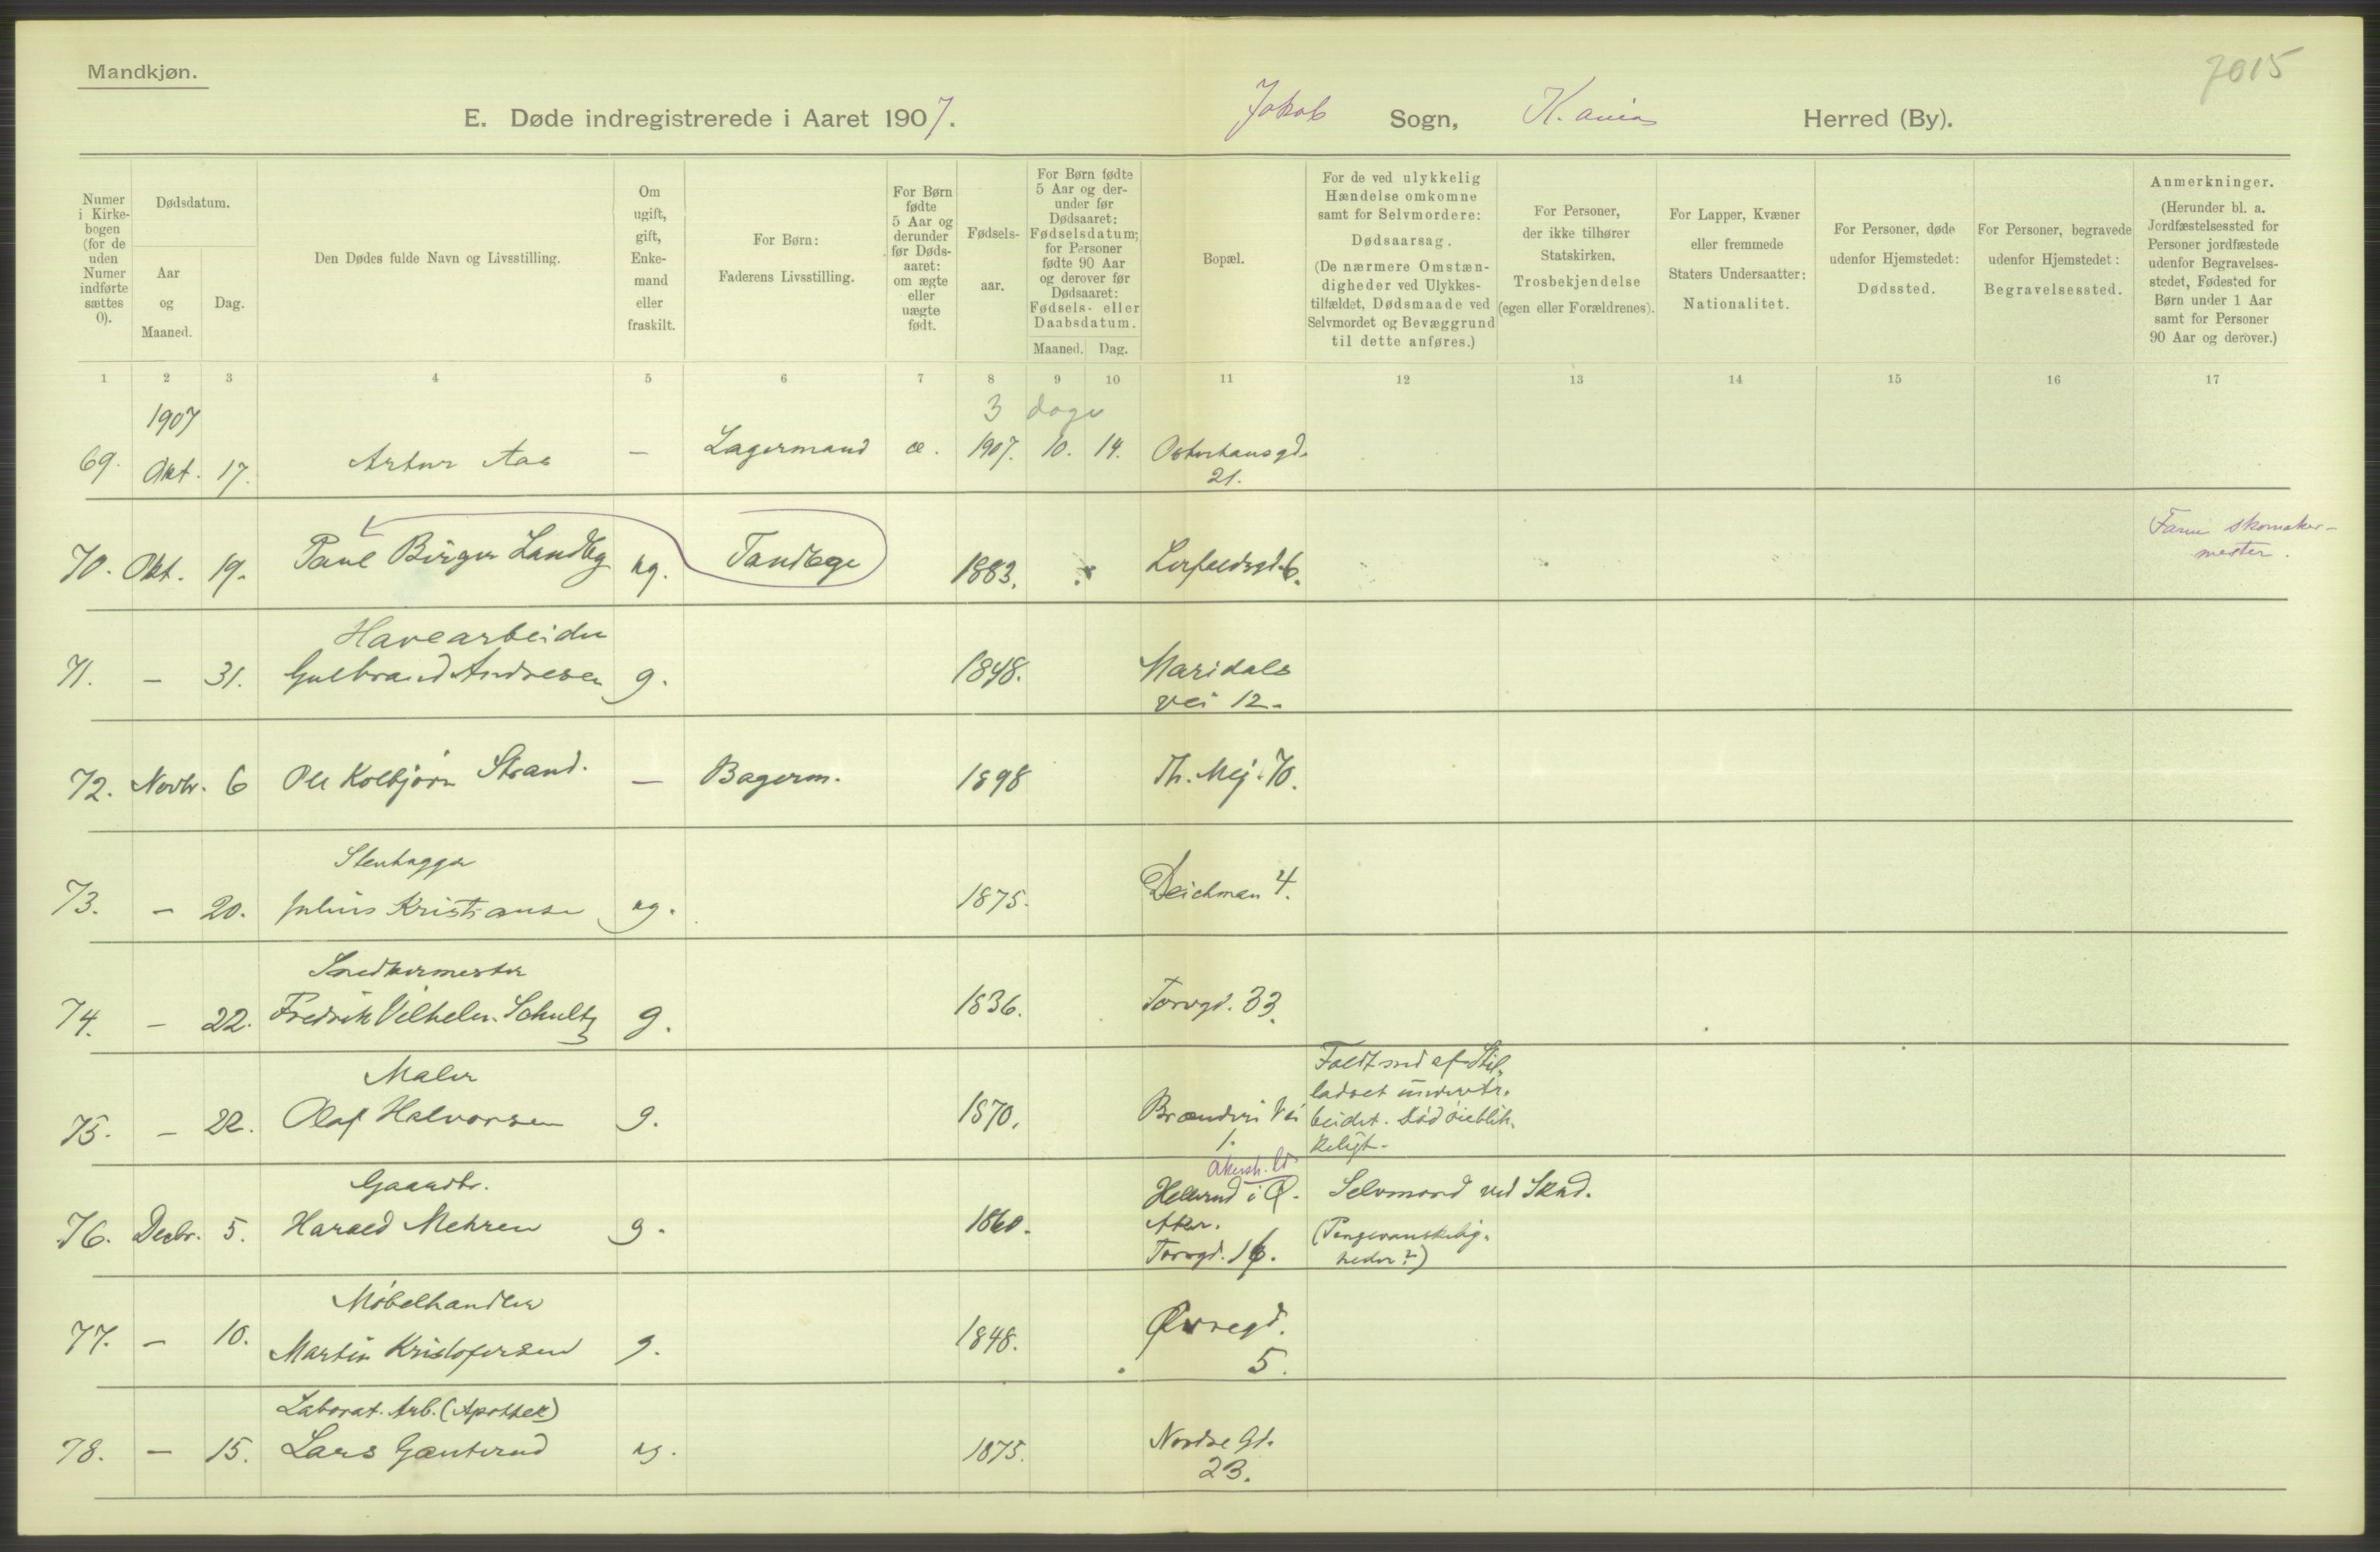 Mandkjøn.
7015
E. Døde indregistrerede i Aaret 1907. Jakob Sogn, K.ania Herred (By).
Numer i Kirkebogen (for de uden Numer indførte sættes 0).
Dødsdatum.
Aar og Maaned.
Dag.
Den Dødes fulde Navn og Livsstilling.
Om ugift, gift, Enkemand eller fraskilt.
For Børn: Faderens Livsstilling.
For Børn fødte 5 Aar og derunder før Dødsaaret: om ægte eller uægte født.
Fødselsaar.
For Børn fødte 5 Aar og derunder før Dødsaaret: Fødselsdatum; for Personer fødte 90 Aar og derover før Dødsaaret: Fødsels- eller Daabsdatum.
Maaned. Dag.
Bopæl.
For de ved ulykkelig Hændelse omkomne samt for Selvmordere: Dødsaarsag. (De nærmere Omstændigheder ved Ulykkestilfældet, Dødsmaade ved Selvmordet og Bevæggrund til dette anføres.)
For Personer, der ikke tilhører Statskirken, Trosbekjendelse (egen eller Forældrenes).
For Lapper, Kvæner eller fremmede Staters Undersaatter: Nationalitet.
For Personer, døde udenfor Hjemstedet: Dødssted.
For Personer, begravede udenfor Hjemstedet: Begravelsessted.
Anmerkninger. (Herunder bl. a. Jordfæstelsessted for Personer jordfæstede udenfor Begravelsesstedet, Fødested for Børn under 1 Aar samt for Personer 90 Aar og derover.)
1 2 3 4 5 6 7 8 9 10 11 12 13 14 15 16 17
1907 3 dage
69. Okt. 17. Artur Aas — Lagermand æ. 1907. 10. 14. Osterhausgd.
21.
70. Okt. 19. Paul Birger Landbg ug. Tandlæge 1883. 6. skomaker-
mester.
Havearbeider
71. — 31. Gulbrand Andresen g. 1848. Maridals
vei 12.
72. Novbr. 6 Ole Kolbjørn Strand. — Bagerm. 1898 Th. Mej. 70.
Stenhugger
73. — 20. Julius Kristianse ug. 1875. Deichman 4.
Snedkermester
74. — 22. Fredrik Vilhelm Schultz g. 1836. Torvgd. 33.
Maler
75. — 22. Olaf Halvorsen g. 1870. Brænderi Vei
1.
Faldt ned af Stil-
ladset under Ar-
beidet. Død øieblik-
keligt.
Gaardbr.
76. Decbr. 5. Harald Mehren g. 1860. Hellerud i Ø. Selvmord ved Skud.
Aker.
Torvgd. 16. (Pengevanskelig-
heder?)
Møbelhandler
77. — 10. Martin Kristofersen g. 1848. Øvregd.
5.
Laborat. Arb. (Apothek)
78. — 15. Lars Gønterud ug. 1875. Nordre Gd.
23.